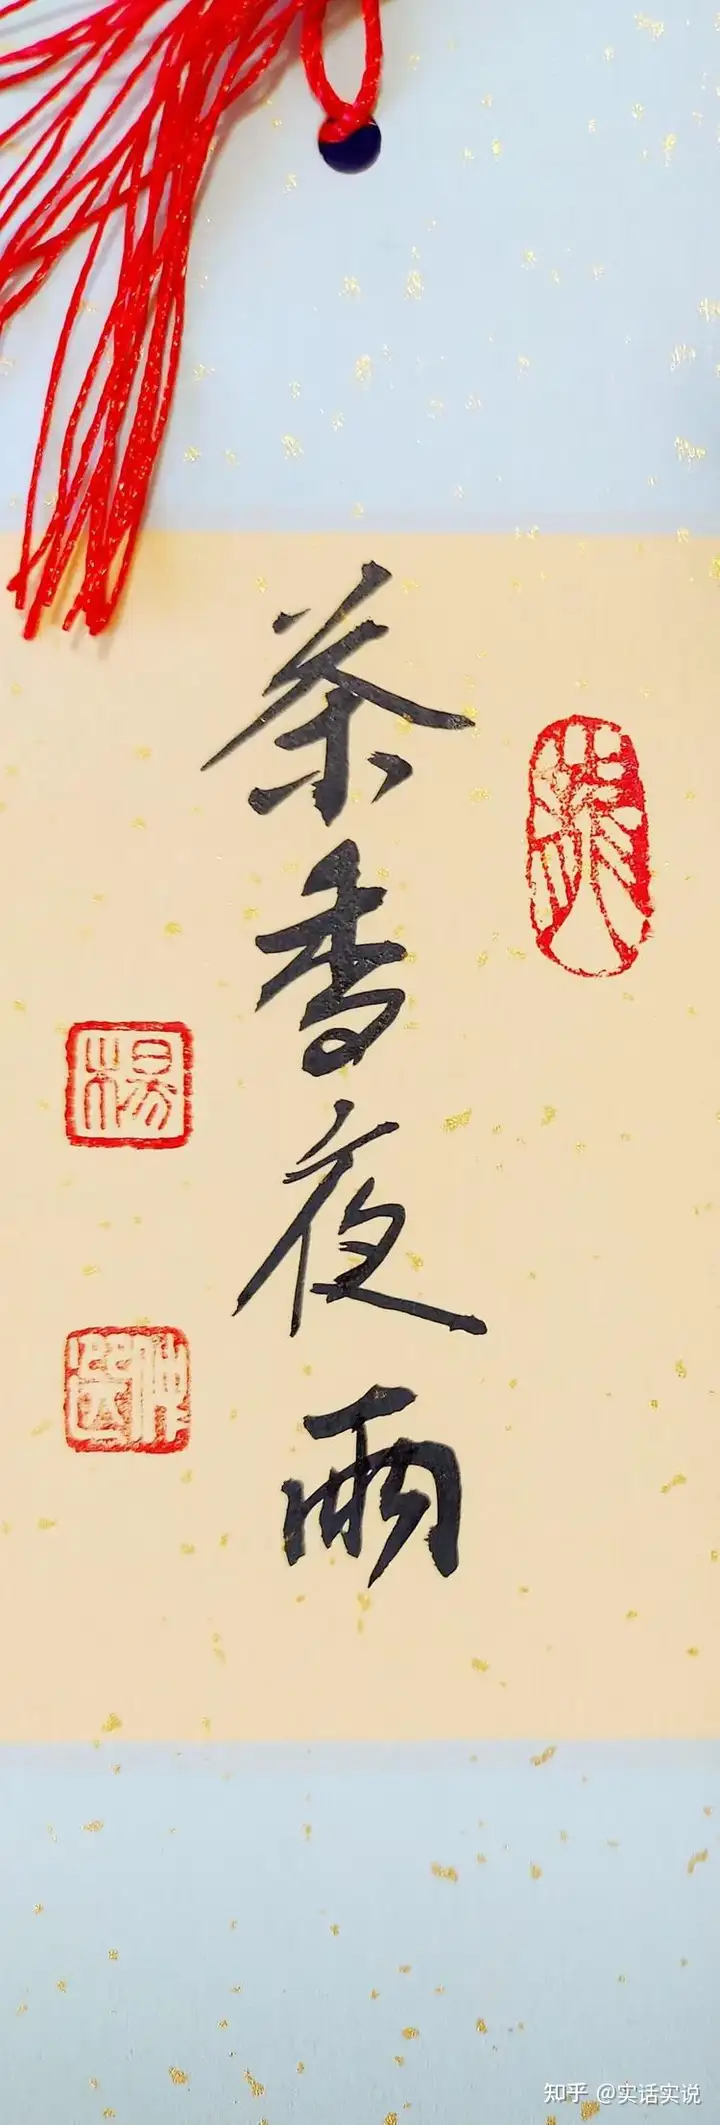 茶香夜雨
楊
知乎 @实话实说